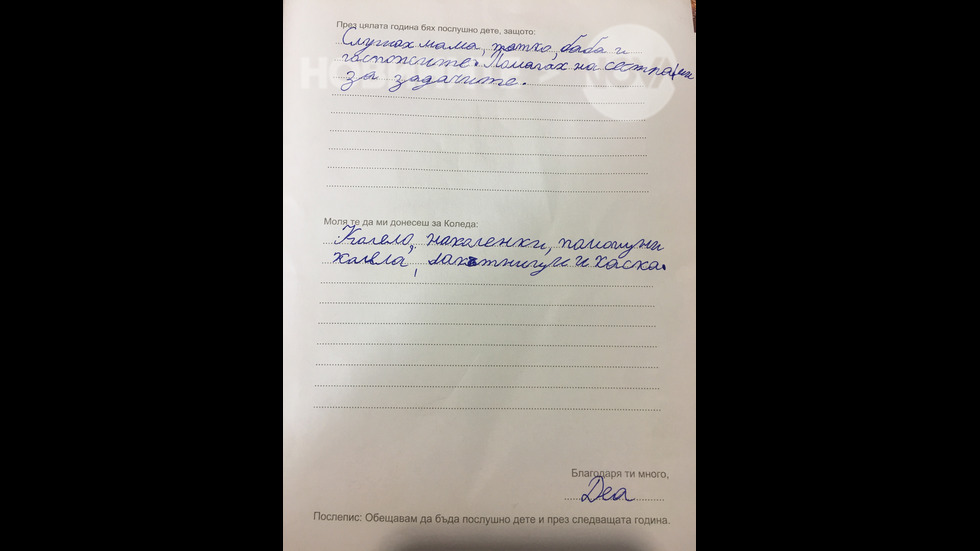 През цялата година бях послушно дете, защото:
Слушах мама, татко, баба и
госпожите. Помагах на сестра ми
за задачите.
НОВИ
Моля те да ми донесеш за Коледа:
Колело, наколенки, помощни
колела, лакътници и каска.
Благодаря ти много,
Деа
Послепис: Обещавам да бъда послушно дете и през следващата година.